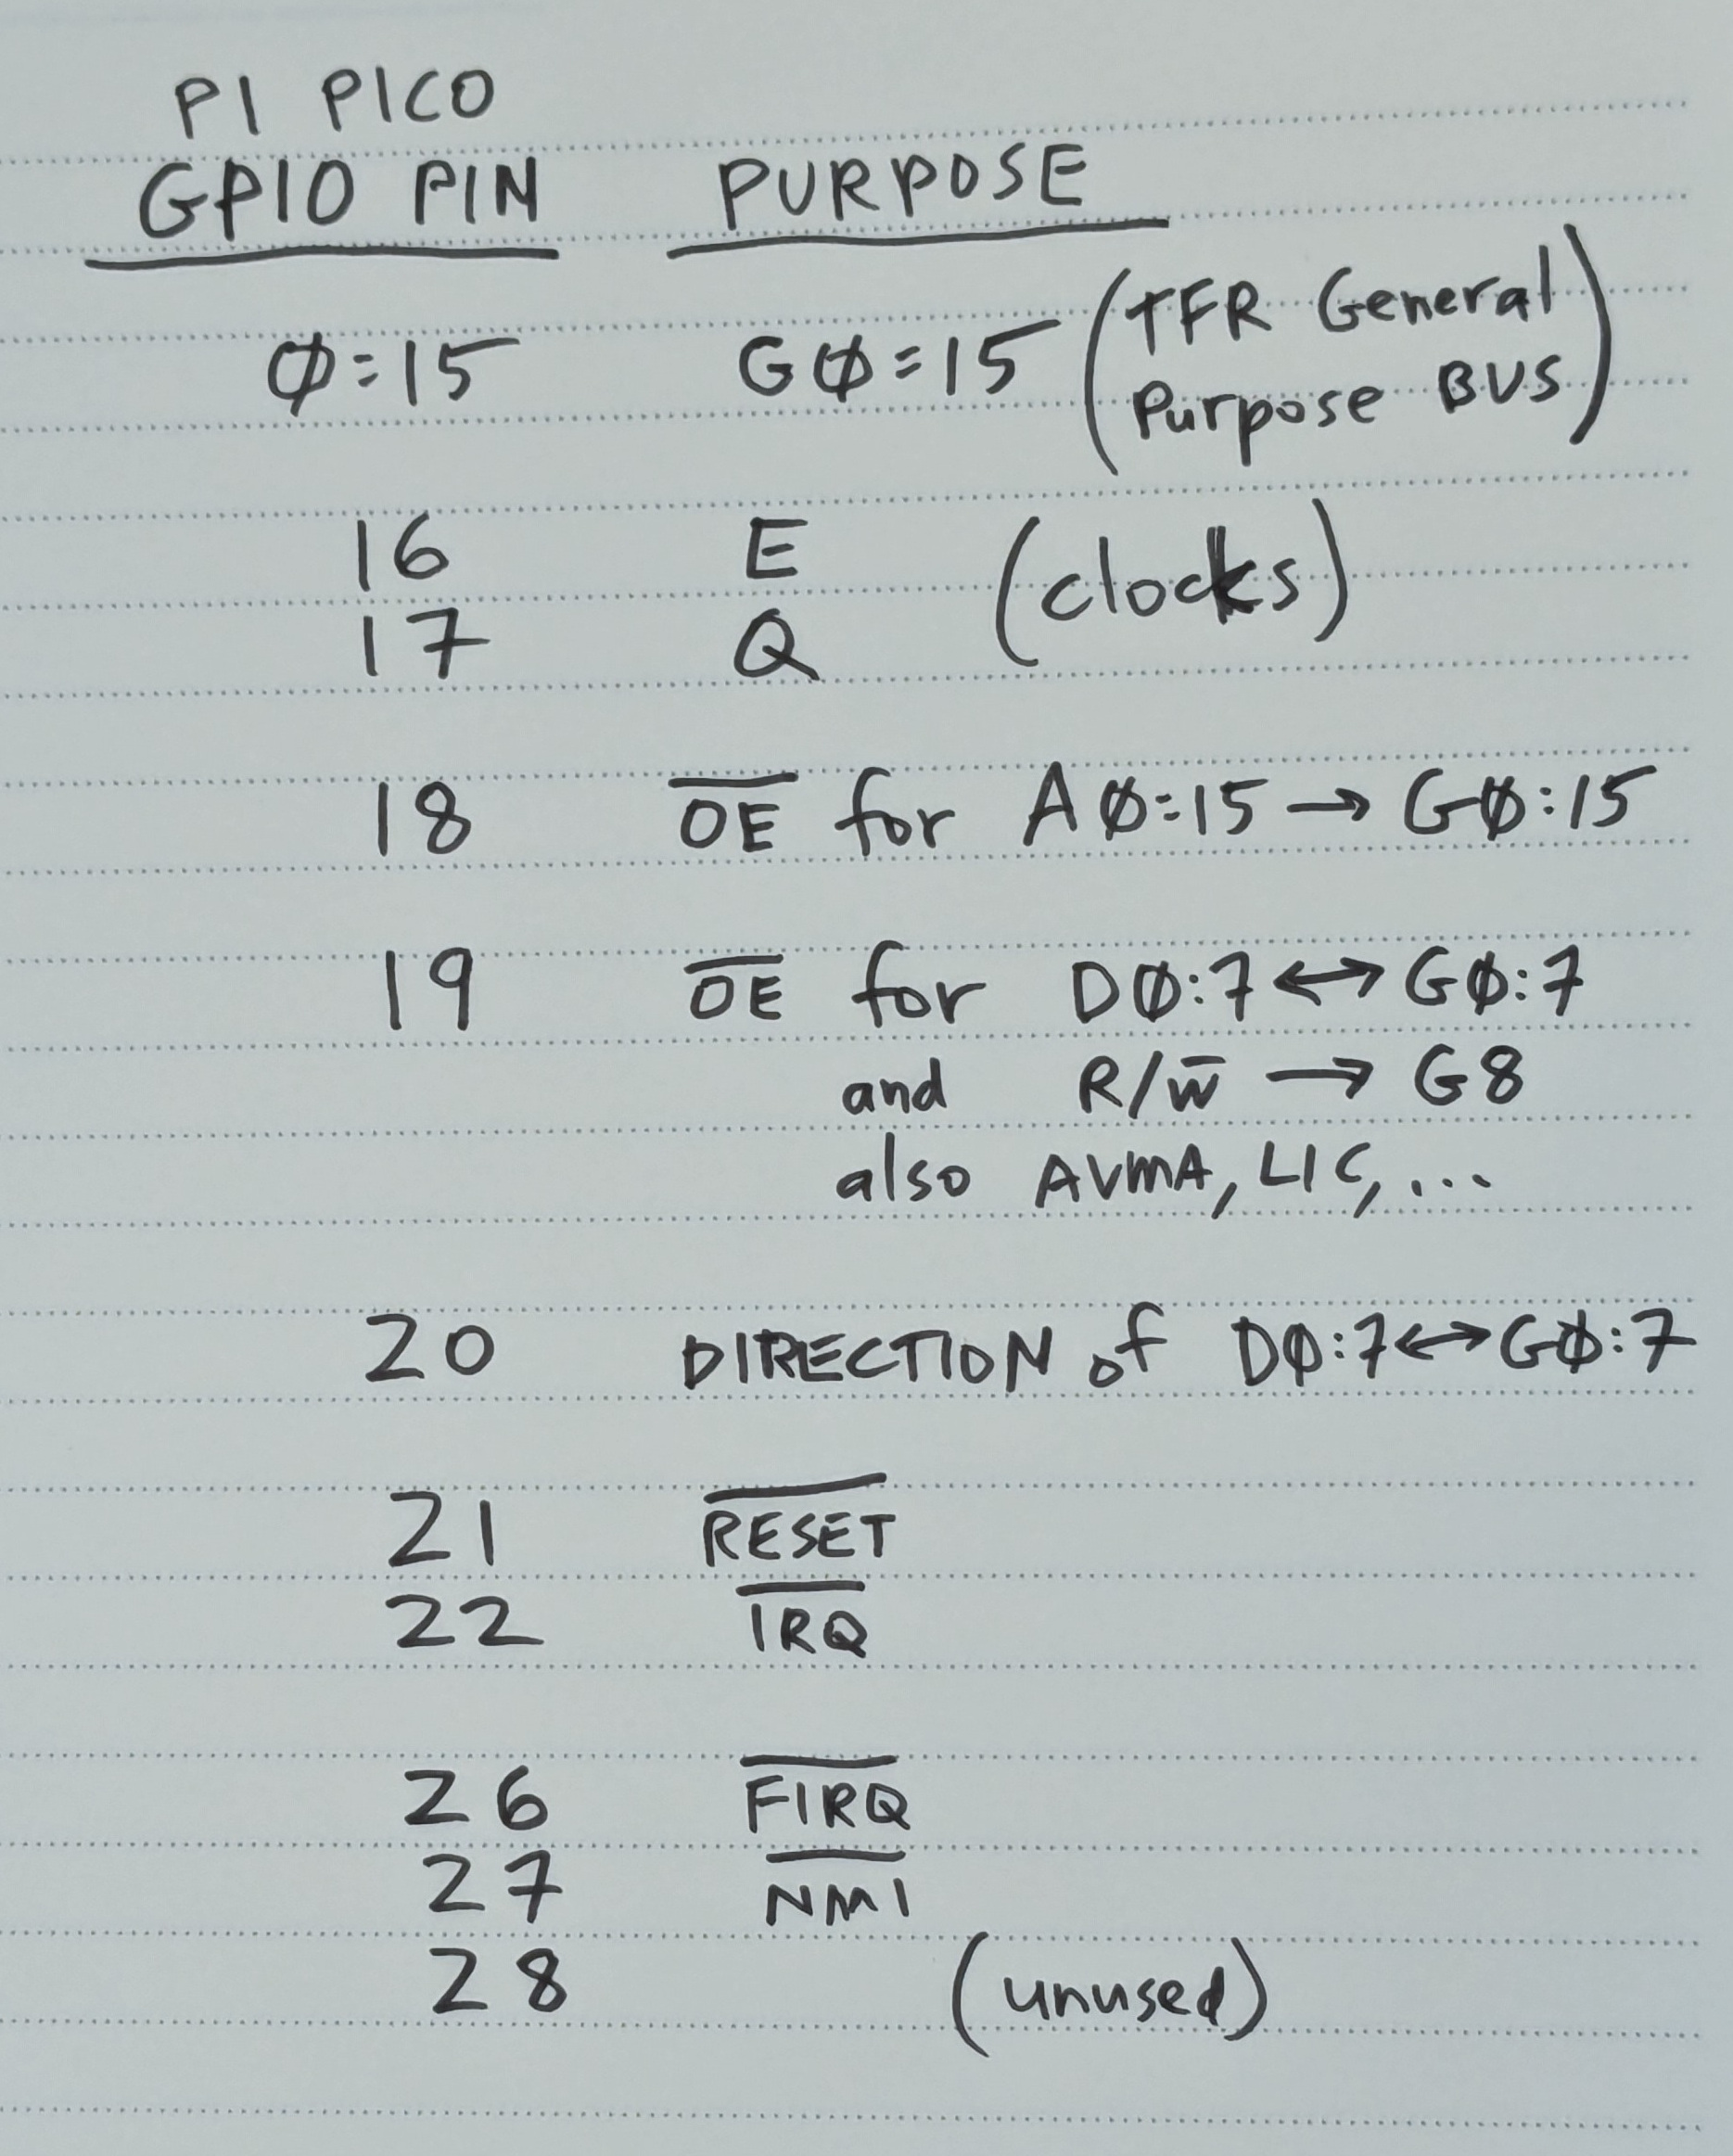 PI PICO
GPIO PIN PURPOSE
Ø:15 GØ:15 (TFR General Purpose BUS)
16 E (clocks)
17 Q
18 O̅E̅ for AØ:15 → GØ:15
19 O̅E̅ for DØ:7 ↔ GØ:7
and R/W̅ → G8
also AVMA, LIC, ...
20 DIRECTION of DØ:7 ↔ GØ:7
21 R̅E̅S̅E̅T̅
22 I̅R̅Q̅
26 F̅I̅R̅Q̅
27 N̅M̅I̅
28 (unused)